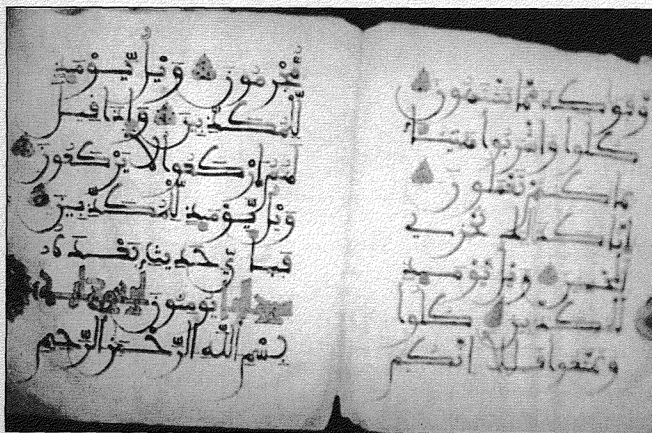 وفوكه مما يشتهون
كلوا واشربوا هنيئا
بما كنتم تعملون
انا كذلك نجزي
المحسنين ويل يومئذ
للمكذبين كلوا
وتمتعوا قليلا انكم
مجرمون ويل يومئذ
للمكذبين واذا قيل
لهم اركعوا لا يركعون
ويل يومئذ للمكذبين
فبأي حديث بعده
يومنون
بسم الله الرحمن الرحيم